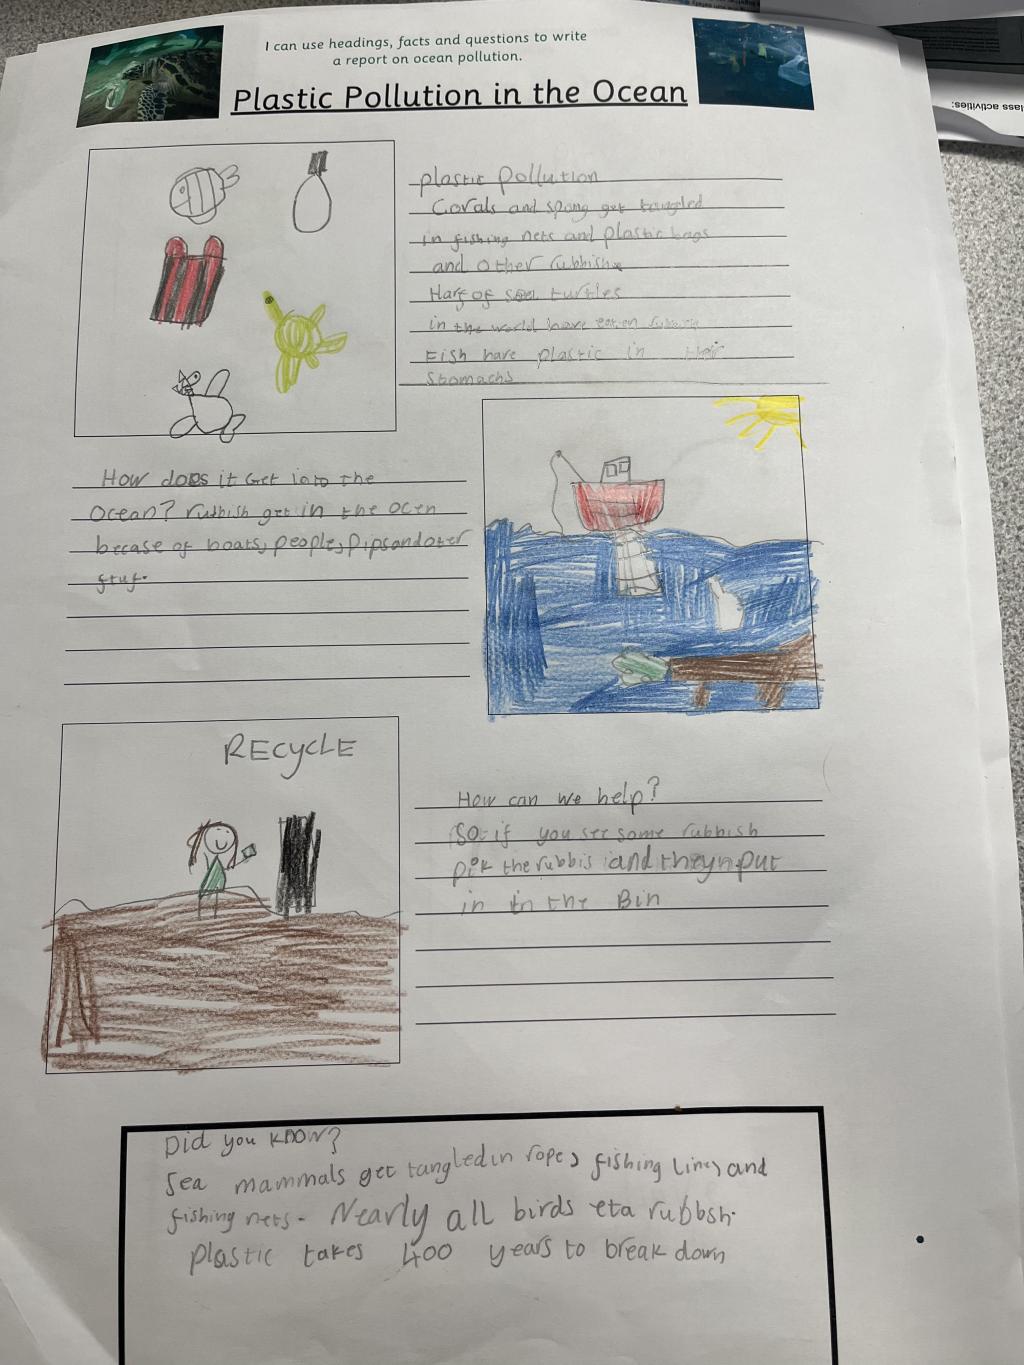 I can use headings, facts and questions to write
a report on ocean pollution.
Plastic Pollution in the Ocean
lass activities:
plastic pollution
Corals and spong get tangled
in fishing nets and plastic bags
and other rubbish.
Harf of sea turtles
in the world have eaten
Fish have plastic in their
Stomachs
How does it Get into the
Ocean? rubbish get in the ocen
becase of boats, people, pips and over
stuf.
RECYCLE
How can we help?
So if you see some rubbish
pik the rubbis and theyn put
in in the Bin
Did you know?
Sea mammals get tangled in rope, fishing lines and
fishing nets. Nearly all birds eta rubbsh.
plastic takes 400 years to break down